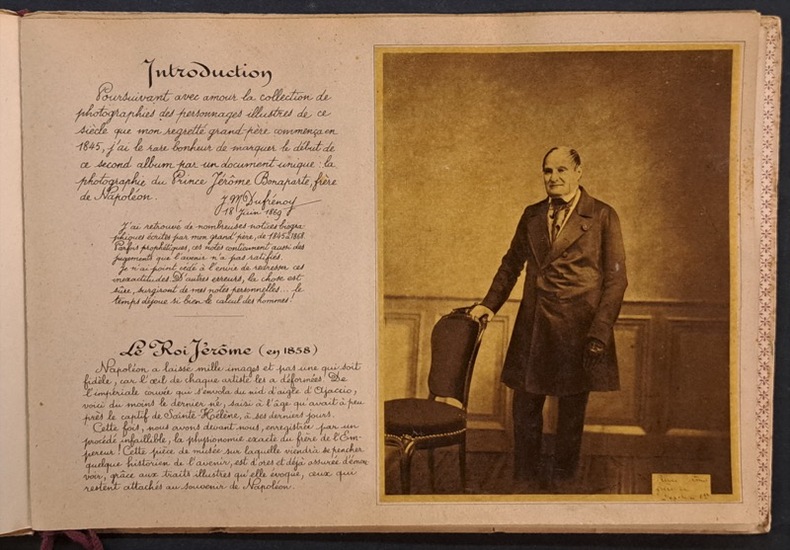 Introduction
Poursuivant avec amour la collection de
photographies des personnages illustres de ce
siècle que mon regretté grand-père commença en
1845, j'ai le rare bonheur de marquer le début de
ce second album par un document unique : la
photographie du Prince Jérôme Bonaparte, frère
de Napoléon.
J Mce Dufrénoy
18 Juin 1869
J'ai retrouvé de nombreuses notices biogra-
phiques écrites par mon grand-père, de 1845 à 1868.
Parfois prophétiques, ces notes contiennent aussi des
jugements que l'avenir n'a pas ratifiés.
Je n'ai point cédé à l'envie de redresser ces
inexactitudes. D'autres erreurs, la chose est
sûre, surgiront de mes notes personnelles... le
temps déjoue si bien le calcul des hommes !
Le Roi Jérôme (en 1858)
Napoléon a laissé mille images et pas une qui soit
fidèle, car l'œil de chaque artiste les a déformées ! De
l'impériale couvée qui s'envola du nid d'aigle d'Ajaccio,
voici du moins le dernier né, saisi à l'âge qu'avait à peu
près le captif de Sainte Hélène, à ses derniers jours.
Cette fois, nous avons devant nous, enregistrée par un
procédé infaillible, la physionomie exacte du frère de l'Em-
pereur ! Cette pièce de musée sur laquelle viendra se pencher
quelque historien de l'avenir, est d'ores et déjà assurée d'émou-
voir, grâce aux traits illustres qu'elle évoque, ceux qui
restent attachés au souvenir de Napoléon.